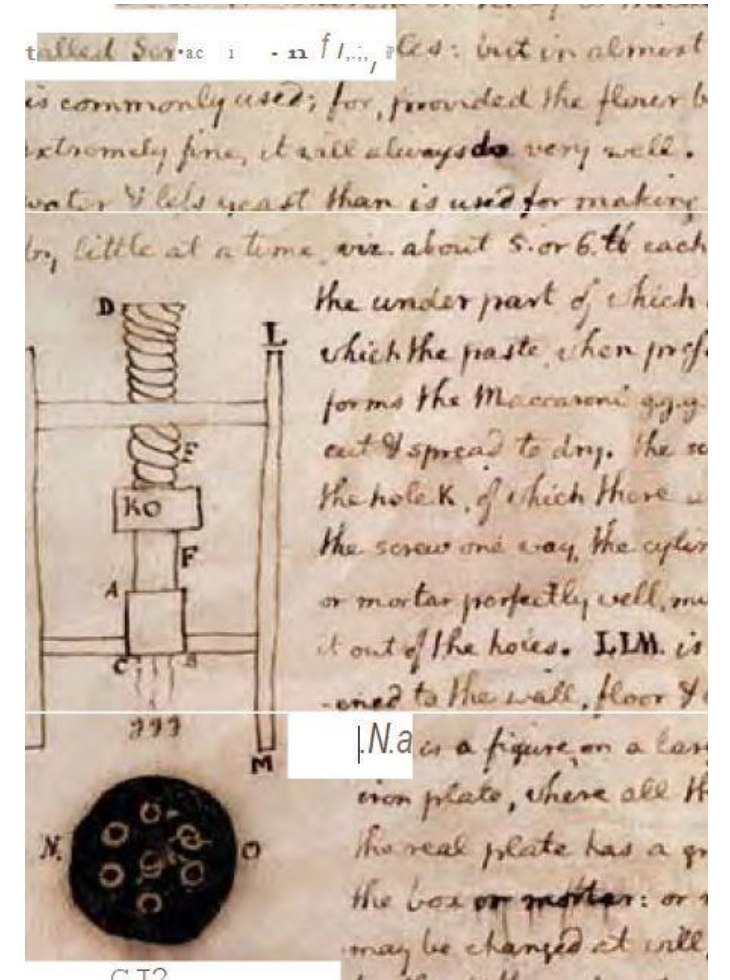 talled Ser
les: but in almost
is commonly used; for, provided the flour b
extremely fine, it will always do very well.
water & less yeast than is used for making
by little at a time, viz. about 5. or 6. ℔ each
the under part of which
which the paste, when press
forms the Maccaroni g.g.g.
cut & spread to dry. the sc
the hole K, of which there
the screw one way, the cylin
or mortar perfectly well, mu
it out of the holes. LLM. is
-ened to the wall, floor &
D
L
E
KO
F
A
C
B
ggg
M
.N.a is a figure, on a larg
iron plate, where all th
the real plate has a gr
the box or mortar: or
may be changed at will,
N.
O